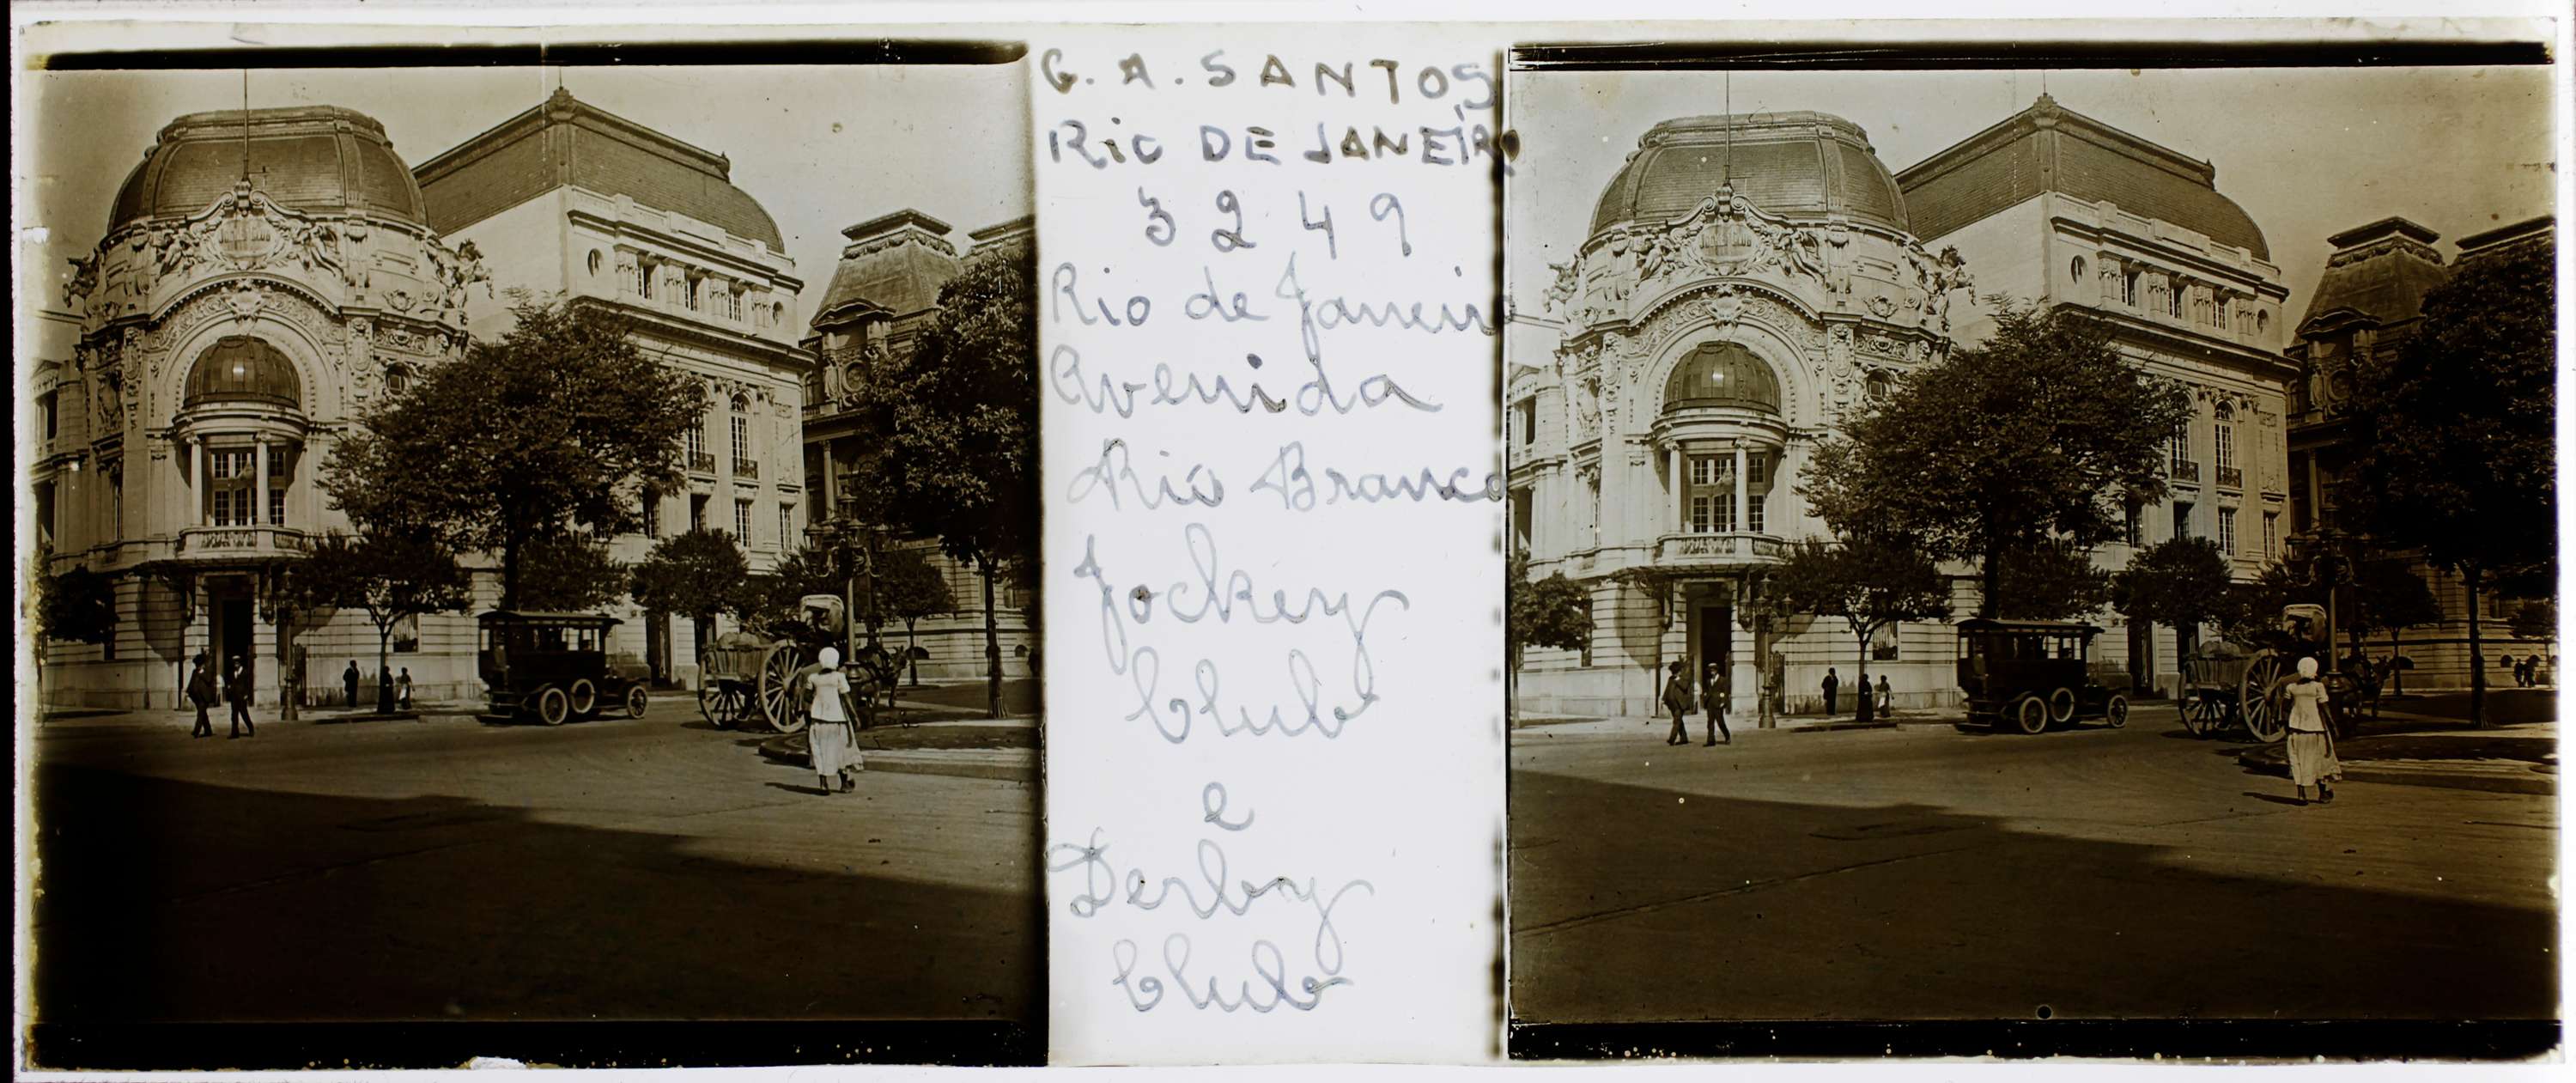 G. A. SANTOS
RIO DE JANEIRO
3249
Rio de Janeiro
Avenida
Rio Branco
Jockey
Club
e
Derby
Club
JOCKEY CLUB